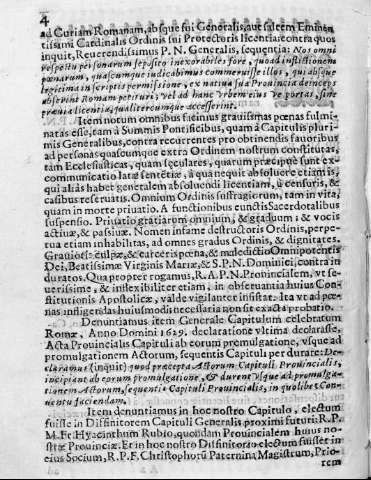 4
ad Curiam Romanam, absque sui Generalis, aut saltem Eminen
tissimi Cardinalis Ordinis sui Protectoris licentia: contra quos
inquit, Reverendissimus P. N. Generalis, sequentia: Nos omni
respectu personarum seposito inexorabiles fore, quoad inflictionem
pœnarum, quascumque indicabimus commeruisse illos, qui absque
legitima in scriptis permissione, ex nativa sua Provincia deinceps
abierint Romam petituri, vel ad hanc Vrbem eius ve portas, sine
prævia licentia, qualitercumque accesserint.
Item notum omnibus facinus gravissimis pœnas fulmi
natas esse, tam à Summis Pontificibus, quam à Capitulis pluri
mis Generalibus, contra recurrentes pro obtinendis favoribus
ad personas quascumque extra Ordinem nostrum constitutas,
tam Ecclesiasticas, quam sęculares, quarum præcipuę sunt ex-
communicatio latæ sententiæ, à qua nequit absolvere etiam is,
qui aliàs habet generalem absolvendi licentiam, à censuris, &
casibus reservatis. Omnium Ordinis suffragiorum, tam in vita,
quam in morte privatio. A functionibus cunctis Sacerdotalibus
suspensio. Privatio gratiarum omnium, & graduum: & vocis
activæ, & passivæ. Nomen infame destructoris Ordinis, perpe-
tua etiam inhabilitas, ad omnes gradus Ordinis, & dignitates.
Gravioris culpæ, & carceris pœna, & maledictio Omnipotentis
Dei, Beatissimæ Virginis Mariæ, & S. P. N. Dominici, contra in
duratos. Qua propter rogamus, R. A. P. N. Provincialem, vt se-
verissimè, & inflexibiliter etiam, in observantia huius Con-
stitutionis Apostolicæ, valde vigilanter insistat. Ita vt ad pœ-
nas infligendas huiusmodi necessaria non sit exacta probatio.
Denuntiamus, item Generale Capitulum celebratum
Romæ, Anno Domini 1629. declaratione vltima declarasse,
Acta Provincialis Capituli ab eorum premulgatione, vsque ad
promulgationem Actorum, sequentis Capituli per durare: De-
claramus (inquit) quod præcepta Actorum Capituli Provincialis,
incipiant ab eorum promulgatione, & durent vsque ad promulga-
tionem Actorum, sequentis Capituli Provincialis, in quolibet Con-
ventu faciendam.
Item denuntiamus in hoc nostro Capitulo, electum
fuisse in Diffinitorem Capituli Generalis proximi futuri: R. P.
M. Fr. Hyacinthum Rubio, quondam Provincialem huius no-
stræ Provinciæ. Et in hoc nostro Diffinitorio electum fuisse in
eius Socium, R. P. F. Christophorũ Paternina Magistrum, Prio-
rem